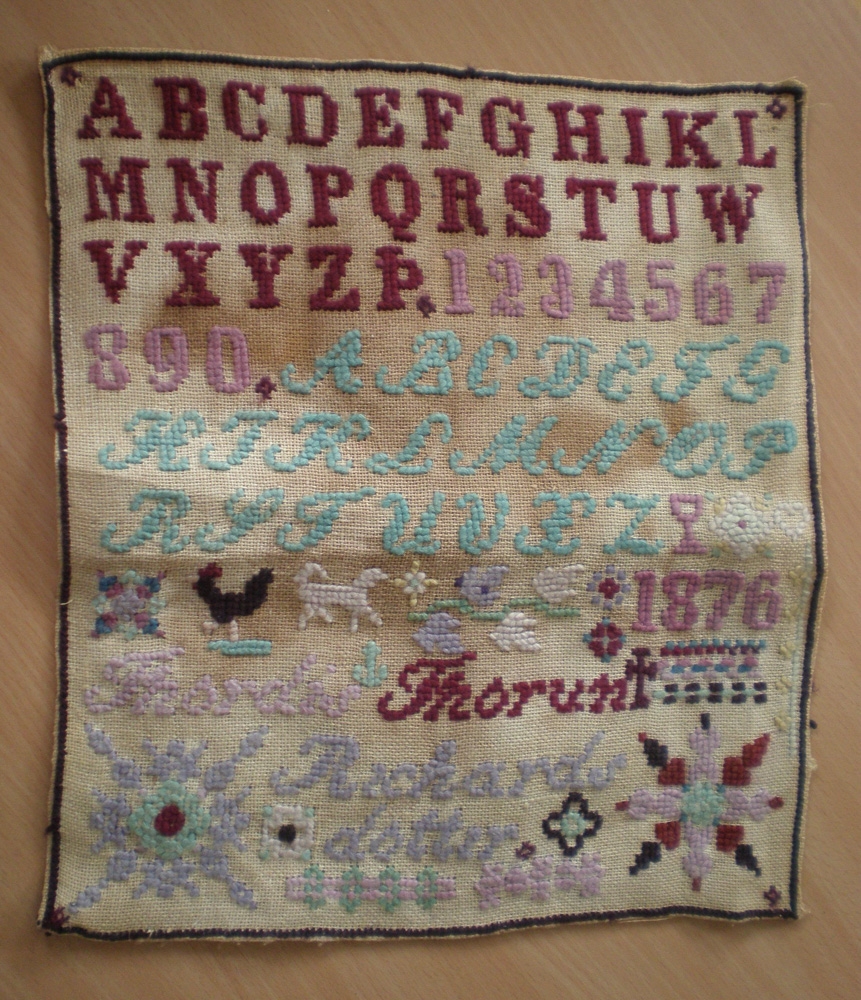 ABCDEFGHIKL
MNOPQRSTUW
VXYZÞ.1234567
890.ABCDEFG
HIKLMNOP
RSTUVXZ
1876
Thordis Thorun
Richards
dotter.